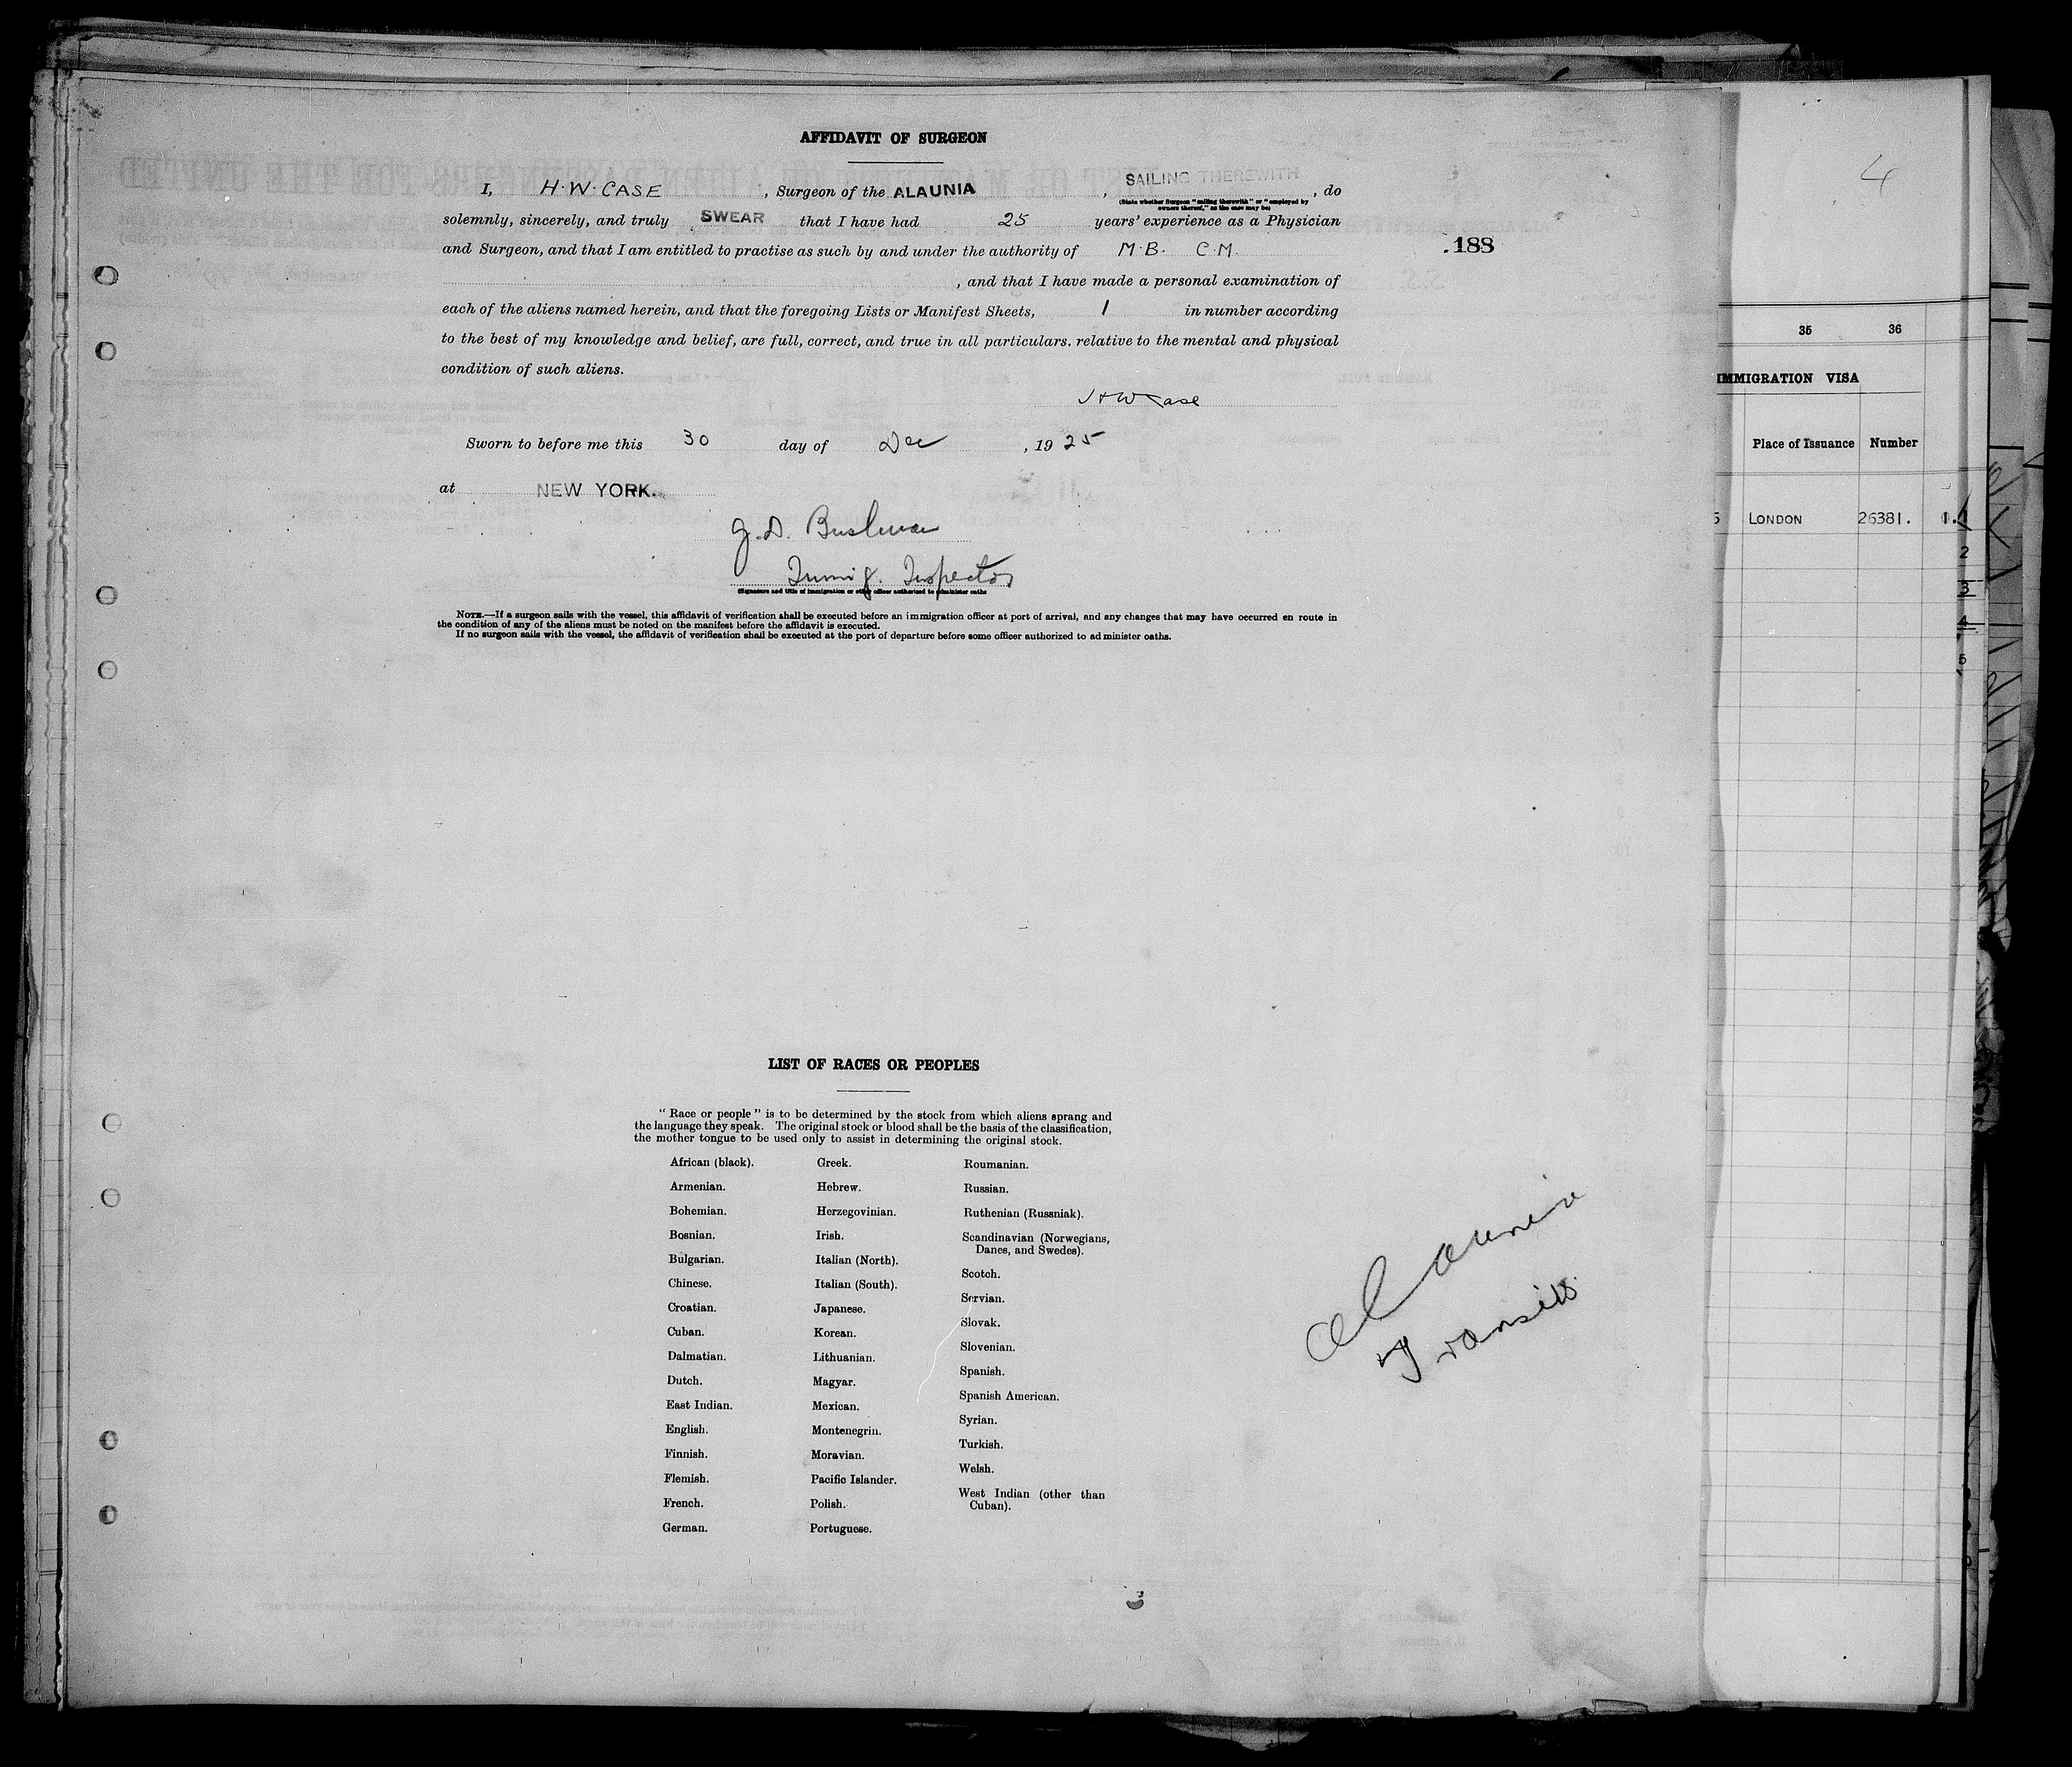 AFFIDAVIT OF SURGEON
I, H.W. CASE, Surgeon of the ALAUNIA, SAILING THEREWITH, do
(State whether Surgeon "sailing therewith" or "employed by
owners thereof," as the case may be)
solemnly, sincerely, and truly SWEAR that I have had 25 years' experience as a Physician
and Surgeon, and that I am entitled to practise as such by and under the authority of M.B. C.M.
, and that I have made a personal examination of
each of the aliens named herein, and that the foregoing Lists or Manifest Sheets, 1 in number according
to the best of my knowledge and belief, are full, correct, and true in all particulars. relative to the mental and physical
condition of such aliens.
HWCase
Sworn to before me this 30 day of Dec, 1925
at NEW YORK.
Immig. Inspector
(Signature and title of immigration or other officer authorized to administer oaths
NOTE.—If a surgeon sails with the vessel, this affidavit of verification shall be executed before an immigration officer at port of arrival, and any changes that may have occurred en route in
the condition of any of the aliens must be noted on the manifest before the affidavit is executed.
If no surgeon sails with the vessel, the affidavit of verification shall be executed at the port of departure before some officer authorized to administer oaths.
.188
LIST OF RACES OR PEOPLES
"Race or people" is to be determined by the stock from which aliens sprang and
the language they speak. The original stock or blood shall be the basis of the classification,
the mother tongue to be used only to assist in determining the original stock.
African (black).
Armenian.
Bohemian.
Bosnian.
Bulgarian.
Chinese.
Croatian.
Cuban.
Dalmatian.
Dutch.
East Indian.
English.
Finnish.
Flemish.
French.
German.
Greek.
Hebrew.
Herzegovinian.
Irish.
Italian (North).
Italian (South).
Japanese.
Korean.
Lithuanian.
Magyar.
Mexican.
Montenegrin.
Moravian.
Pacific Islander.
Polish.
Portuguese.
Roumanian.
Russian.
Ruthenian (Russniak).
Scandinavian (Norwegians,
Danes, and Swedes).
Scotch.
Servian.
Slovak.
Slovenian.
Spanish.
Spanish American.
Syrian.
Turkish.
Welsh.
West Indian (other than
Cuban).
Alaunia
Transits
4
35 36
IMMIGRATION VISA
Place of Issuance Number
5 LONDON 26381. 1
2
3
4
5